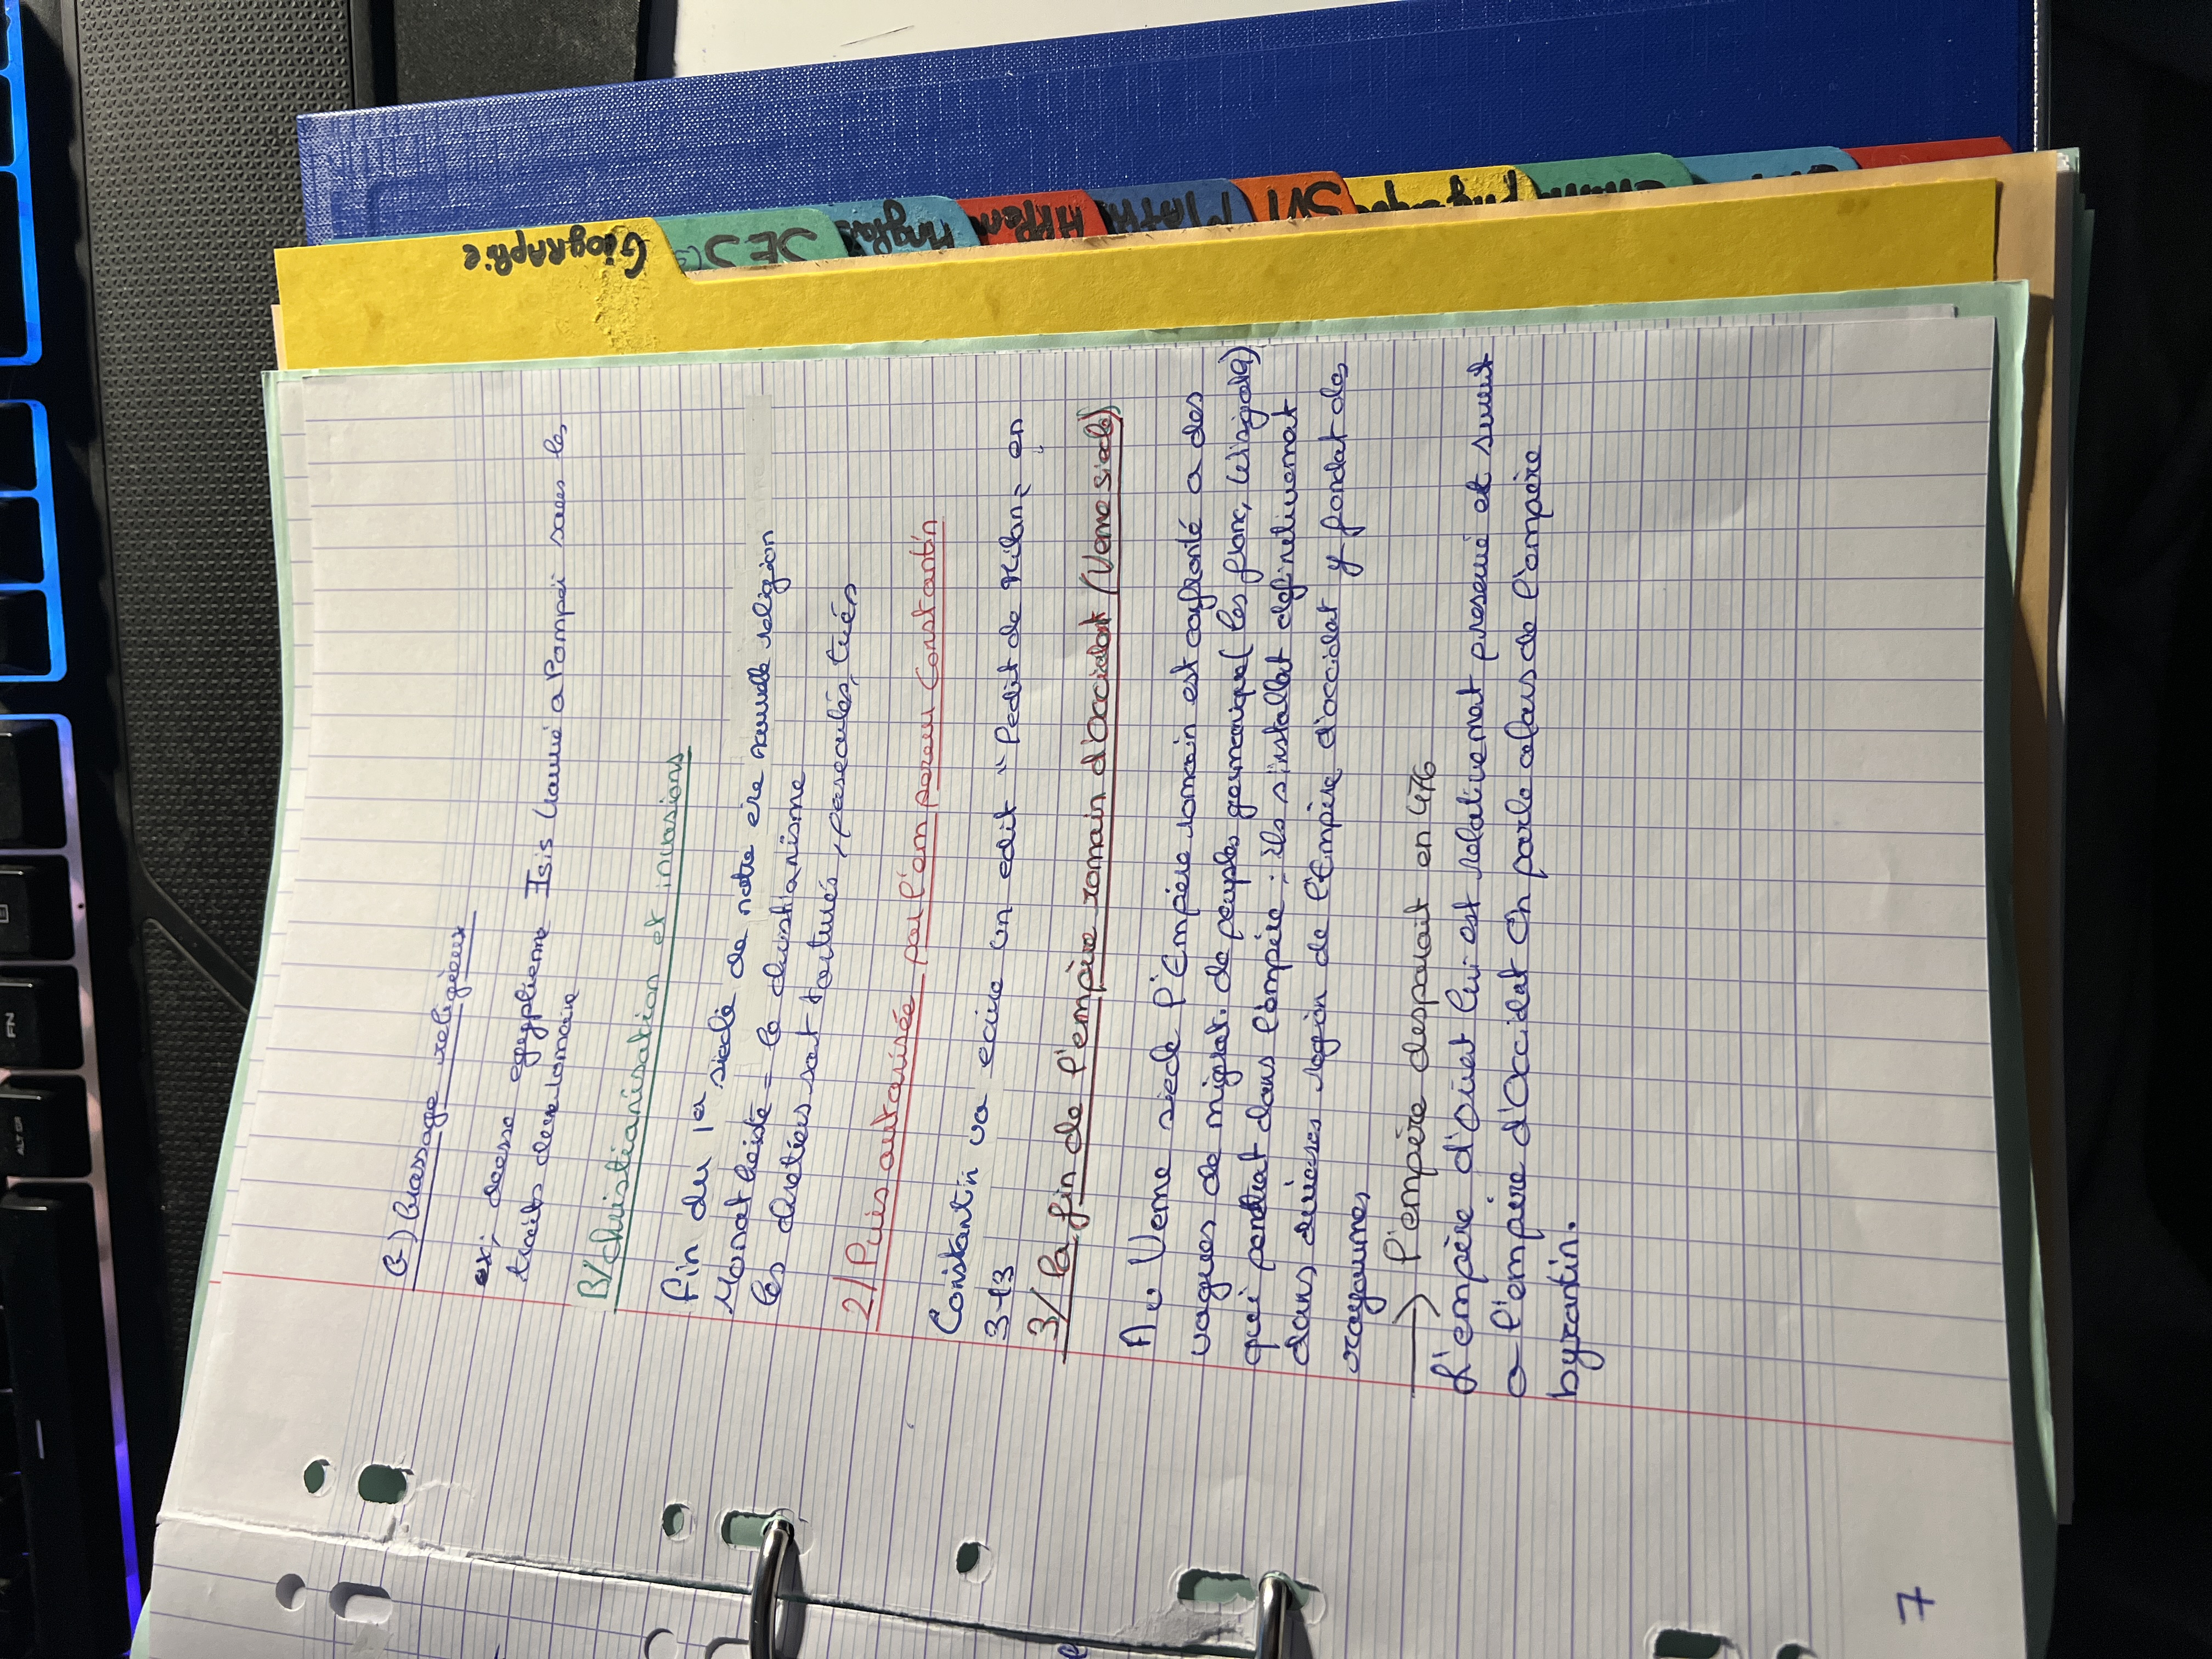 C) Brassage religieux
ex: deesse egyptienne Isis trouvé a Pompéi sous les
traits d'une romaine
B/ christianisation et invasions
fin du 1er siecle de notre ere nouvelle religion
Monotheiste = le christianisme
les chretiens sont torturés, persecutés, tués
2/ Puis autorisée par l'empereur Constantin
Constantin va ecrire un edit "l'edit de Milan = en
313
3/ La fin de l'empère romain d'occident (Veme siecle)
Au Veme siecle l'Empère romain est confronté a des
vagues de migrat. de peuples germanique (les franc, Wisigoth)
qui pentrent dans l'empère : ils s'installent definitivement
dans diverses region de l'Empère d'occident y fondat des
royaumes
→ l'empère desparait en 476
L'empère d'orient lui est relativement preservé et survit
a l'empère d'Occident On parle alors de l'empère
byzantin.
7
Géographie
SES
Anglais
MATH
SVT
FN
ALT GR